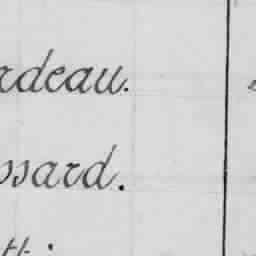 rdeau.
ssard.